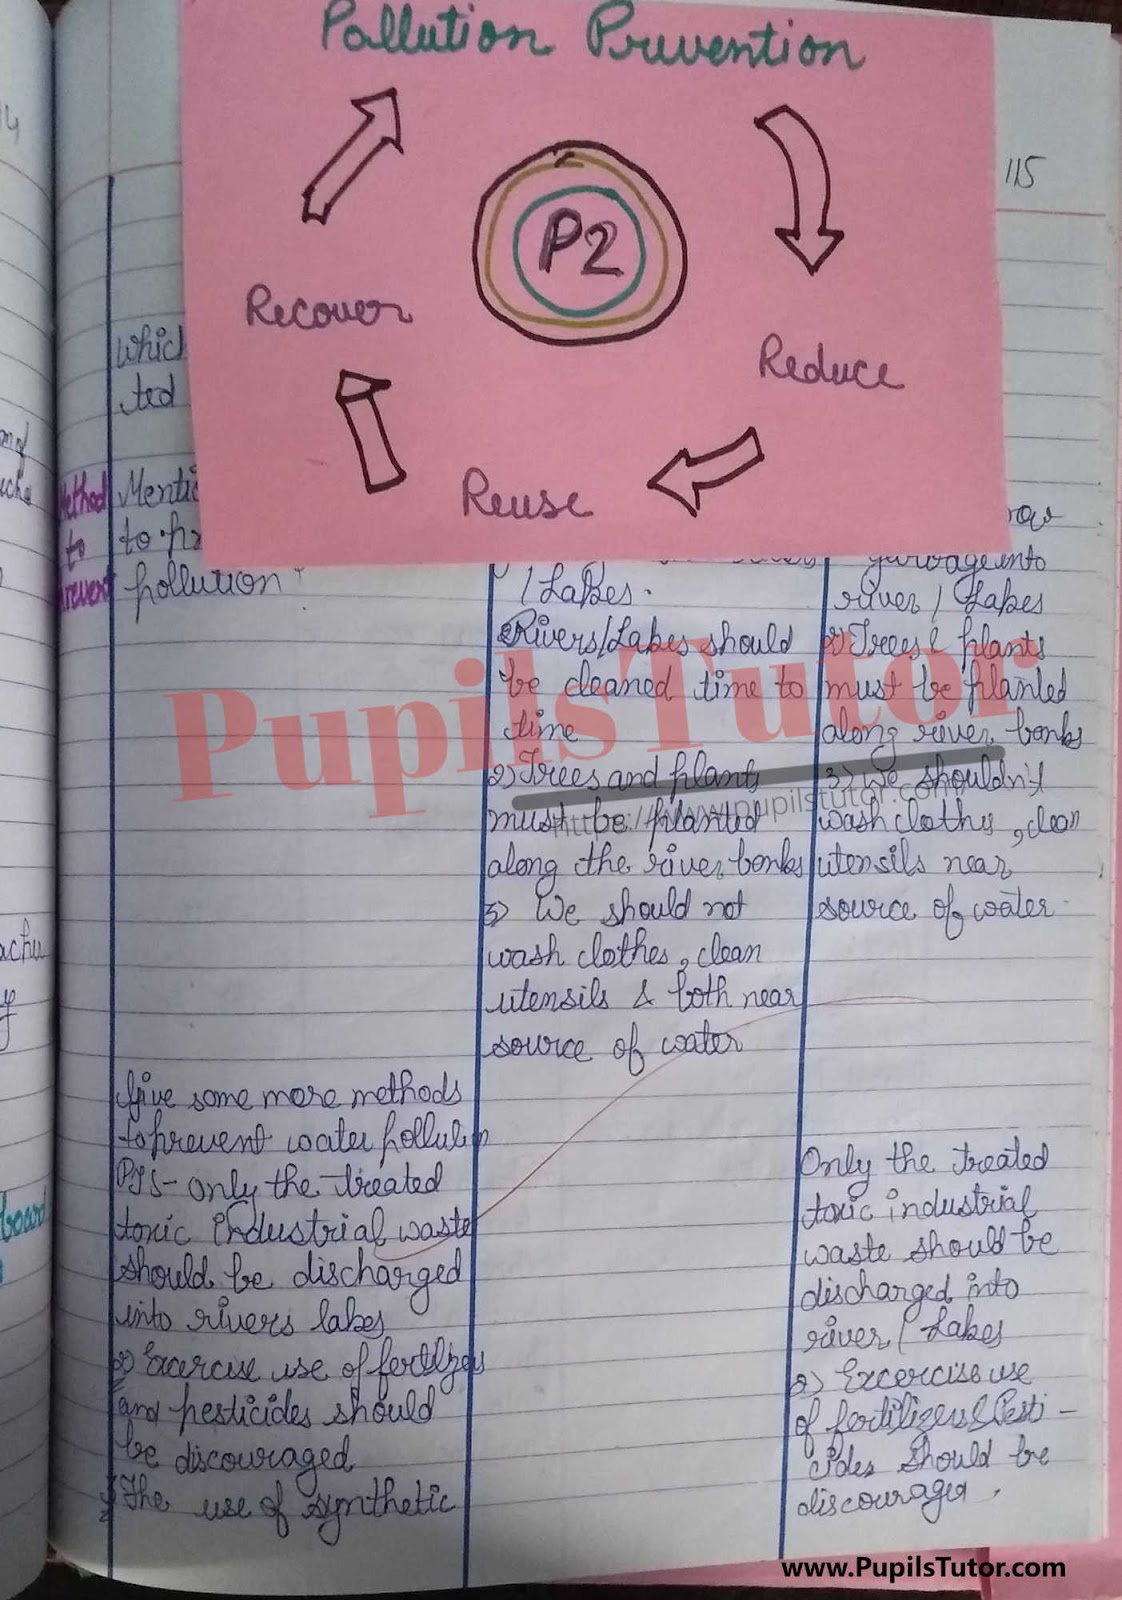 Pollution Prevention
P2
Reduce
Reuse
Recover
115
14
which
ted
Method
to
prevent
Mentio
to pr
pollution?
/ Lakes.
2) Rivers/Lakes should
be cleaned time to
time
2) Trees and plants
must be planted
along the river banks
3) We should not
wash clothes, clean
utensils & both near
source of water
row
garbage into
river / Lakes
2) Trees & plants
must be planted
along river banks
3) We shouldn't
wash clothes, clean
utensils near
source of water.
Give some more methods
to prevent water pollution
PTS- only the treated
toxic industrial waste
should be discharged
into rivers lakes
2) Excercise use of fertilizers
and pesticides should
be discouraged
The use of synthetic
Only the treated
toxic industrial
waste should be
discharged into
river / Lakes
2) Excercise use
of fertilizers & Pesti-
cides should be
discourager.
board
PupilsTutor
https://www.pupilstutor.com
www.PupilsTutor.com